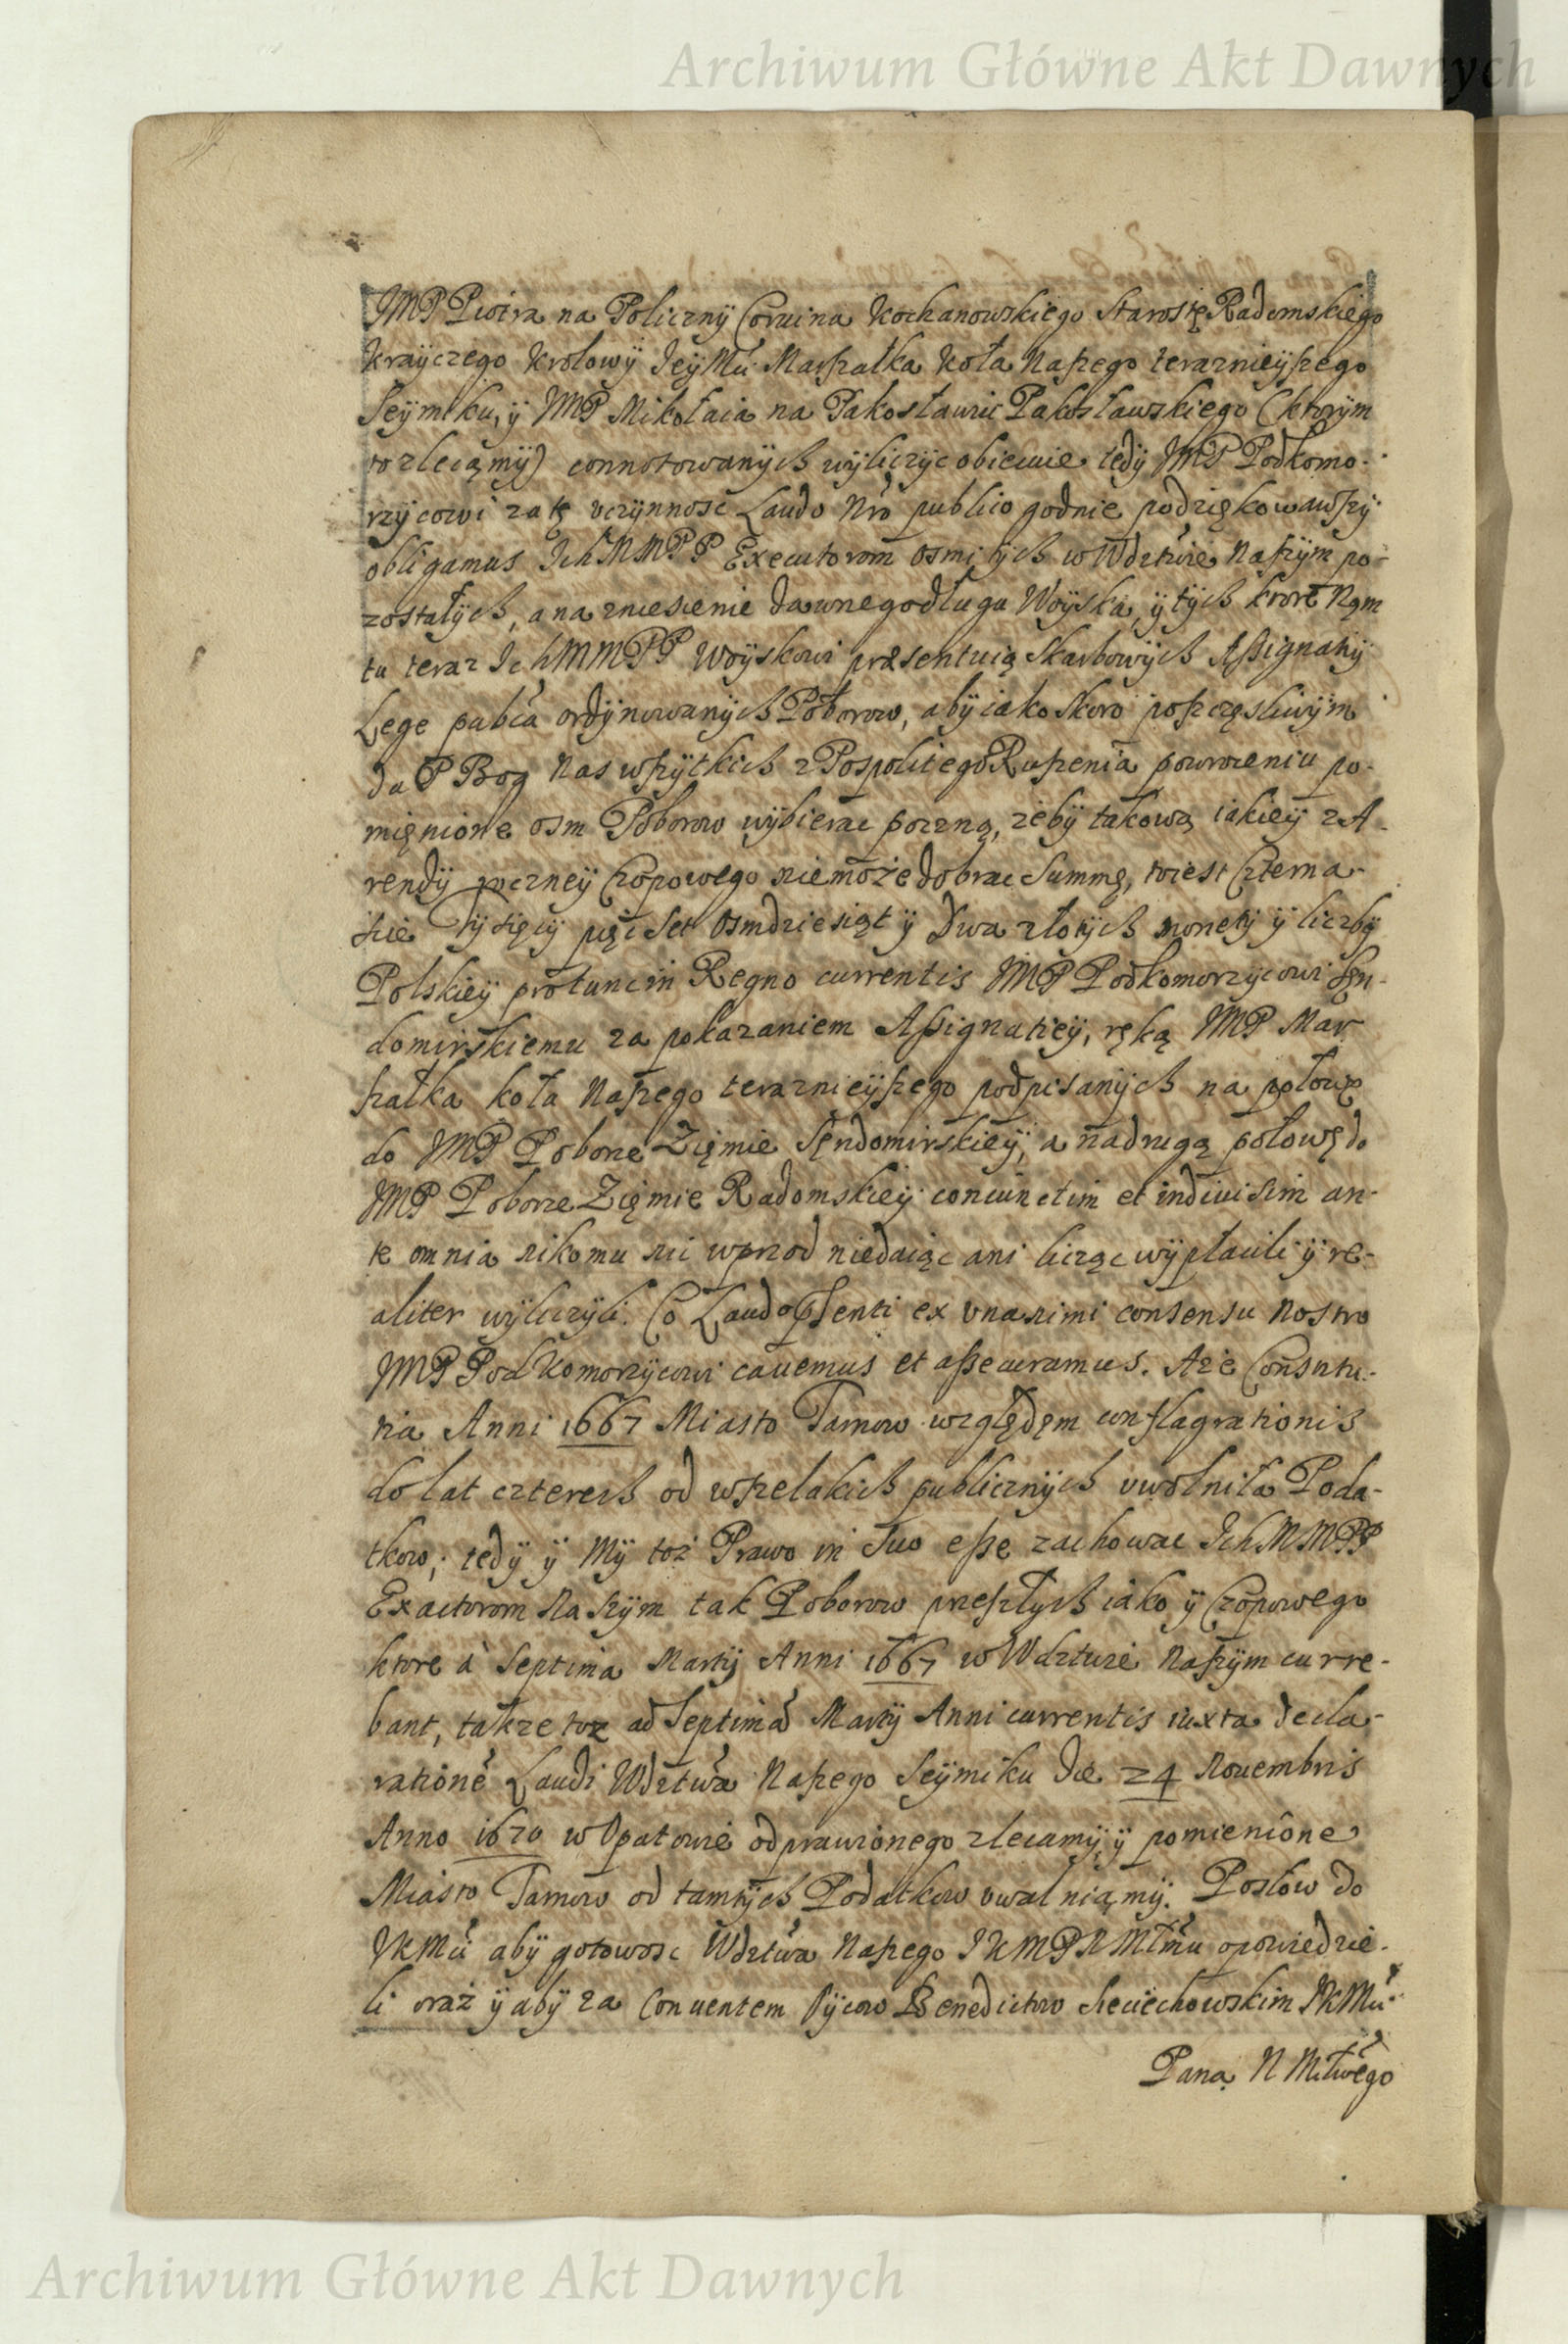 Archiwum Główne Akt Dawnych
JMP Piotra na Policzny Corvina Kochanowskiego Starostę Radomskiego
Krayczego Krolowÿ JeÿMći Marszałka Koła Naszego teraznieÿszego
Seÿmiku, ÿ JMP Mikołaia na Pakosławiu Pakosławskiego (ktorÿm
to zlecąmÿ) connotowanÿch wÿliczÿc obiecuie tedÿ JMP Podkomo-
rzÿcowi za tę vczÿnnosć Laudo Nrõ publico godnie podziękowawszÿ
obligamus IchMMPP Executorom osmi tÿch w Wdztwie Naszÿm po-
zostałÿch, a na zniesienie dawnego długu Woÿska, ÿ tÿch ktore Nąm
tu teraz IchMMPP Woÿskowi præsentuią Skarbowÿch Assignatiÿ
Lege publca ordÿnowanÿch Poborow, abÿ iako skoro poszczęsliwÿm
da P Bog Nas wszÿtkich z Pospolitego Ruszenia powroceniu po-
mięnione osm Poborow wÿbierac poczną, żebÿ takową iakieÿ z A-
rendÿ roczneÿ Czopowego niemoże dobrac Summę, to iest Czterna-
scie Tÿsięcÿ pięc Set Osmdziesiąt ÿ Dwa złotÿch monetÿ ÿ liczbÿ
Polskieÿ pro tunc in Regno currentis JMP Podkomorzÿcowi Sęn-
domirskiemu za pokazaniem Assignatieÿ, ręką JMP Mar
szałka koła Naszego teraznieÿszego podpisanÿch na połowę
do JMP Poborce Zięmie Sęndomirskieÿ, a na drugą połowę do
JMP Poborce Zięmie Radomskieÿ coniunctim et indiuisim an-
te omnia nikomu nic wprzod niedaiąc ani licząc wÿpłacili ÿ re-
aliter wÿliczÿli. Co Laudo pſenti ex vnanimi consensu Nostro
JMP Podkomorzÿcowi cavemus et assecuramus. A że Constitu-
tia Anni 1667 Miasto Tarnow względęm conflagrationis
do lat czterech od wszelakich publicznÿch vwolniła Poda-
tkow, tedÿ ÿ Mÿ toż Prawo in Suo esse zachowac IchMMPP
Exactorom Naszÿm tak Poborow przeszłÿch iako ÿ Czopowego
ktore à Septima Martÿ Anni 1667 w Wdztwie Naszÿm curre-
bant, takze toz ad Septimā Martÿ Anni currentis iuxta decla-
rationē Laudi Wdztwa Naszego Seÿmiku Die 24 Novembris
Anno 1670 w Opatowie odprawionego zlecamÿ, ÿ pomienione
Miasto Tarnow od tamtÿch Podatkow vwalniąmÿ. Posłow do
JKMći abÿ gotowosc Wdztwa Naszego JKMPNMłmu opowiedzie-
li oraz ÿ abÿ za Conventem Oÿcow Benedictow Sieciechowskim JKMći
Pana N Miłwego
Archiwum Główne Akt Dawnych